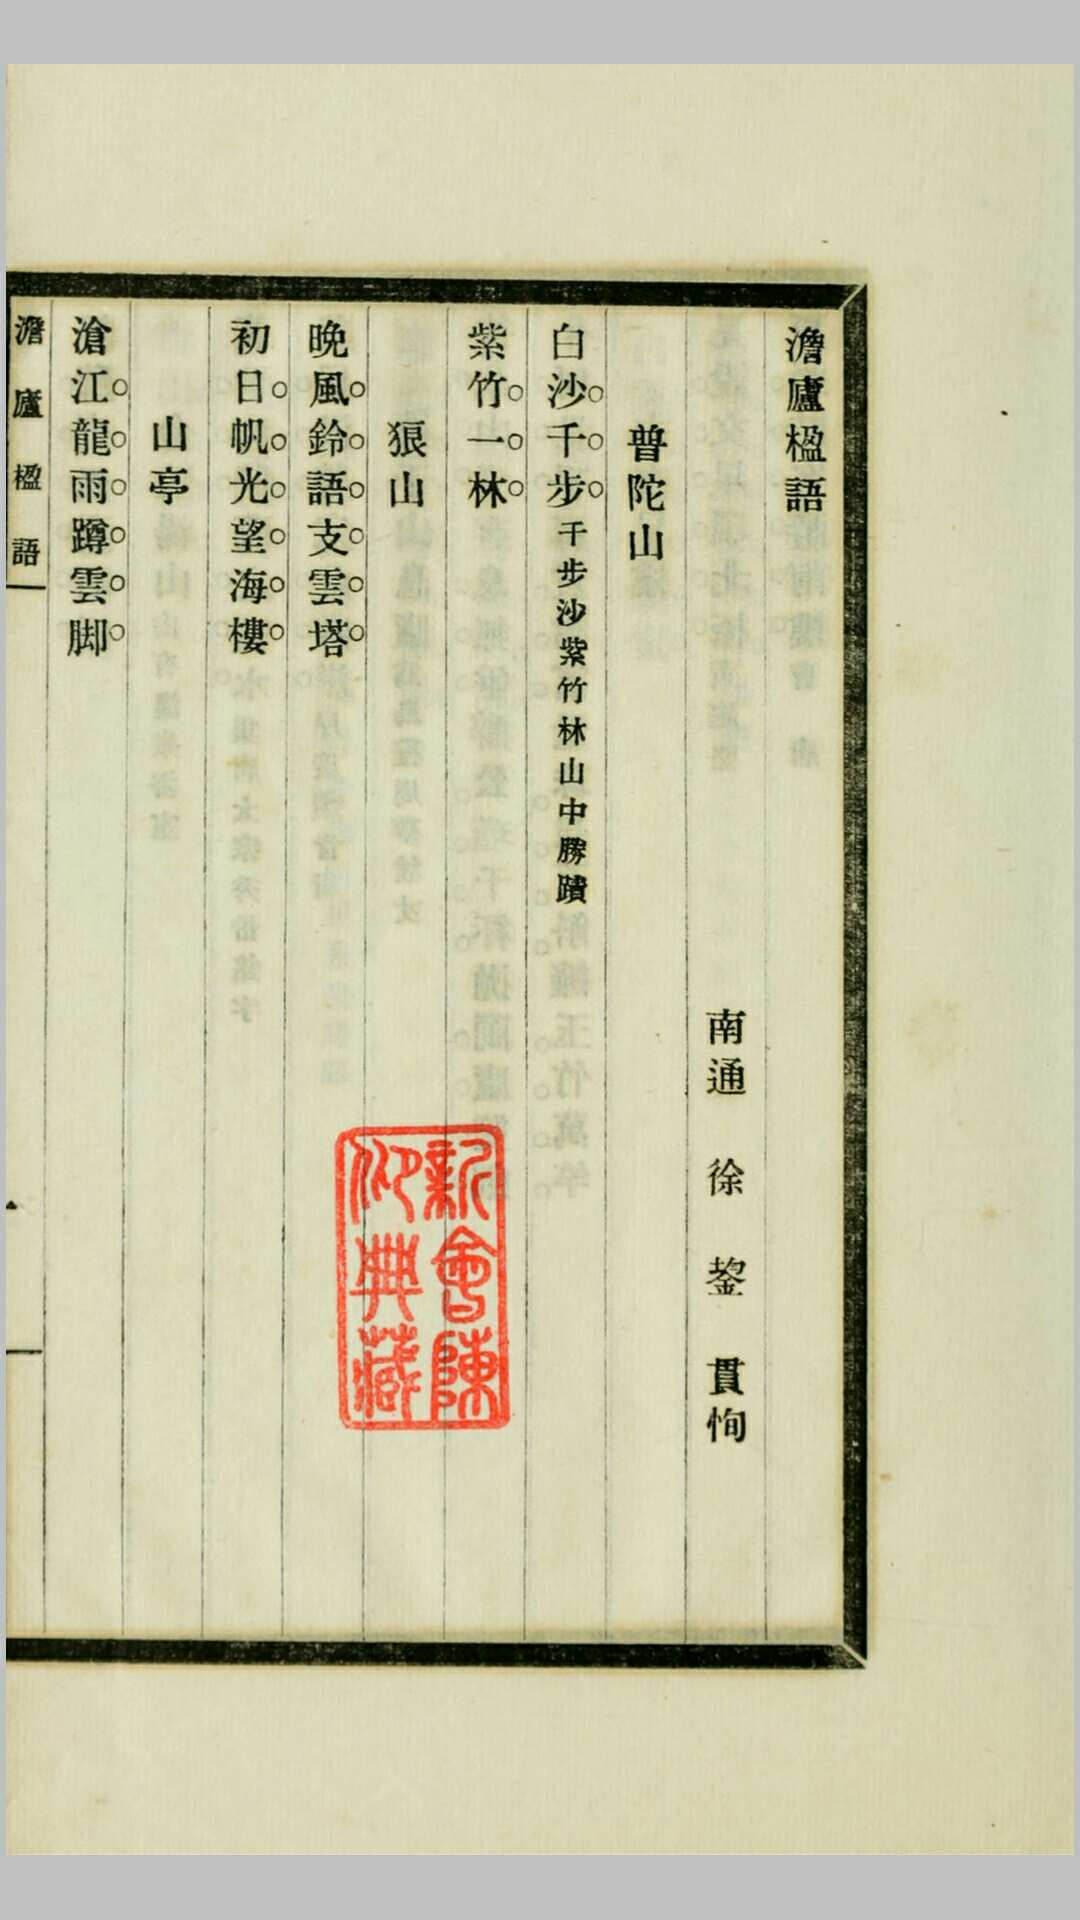 澹廬楹語
南通 徐 鋆 貫恂
普陀山
白沙千步 千步沙紫竹林山中勝蹟
紫竹一林
狼山
晚風鈴語支雲塔
初日帆光望海樓
山亭
滄江龍雨蹲雲脚
澹廬楹語
新會陳
仰典藏